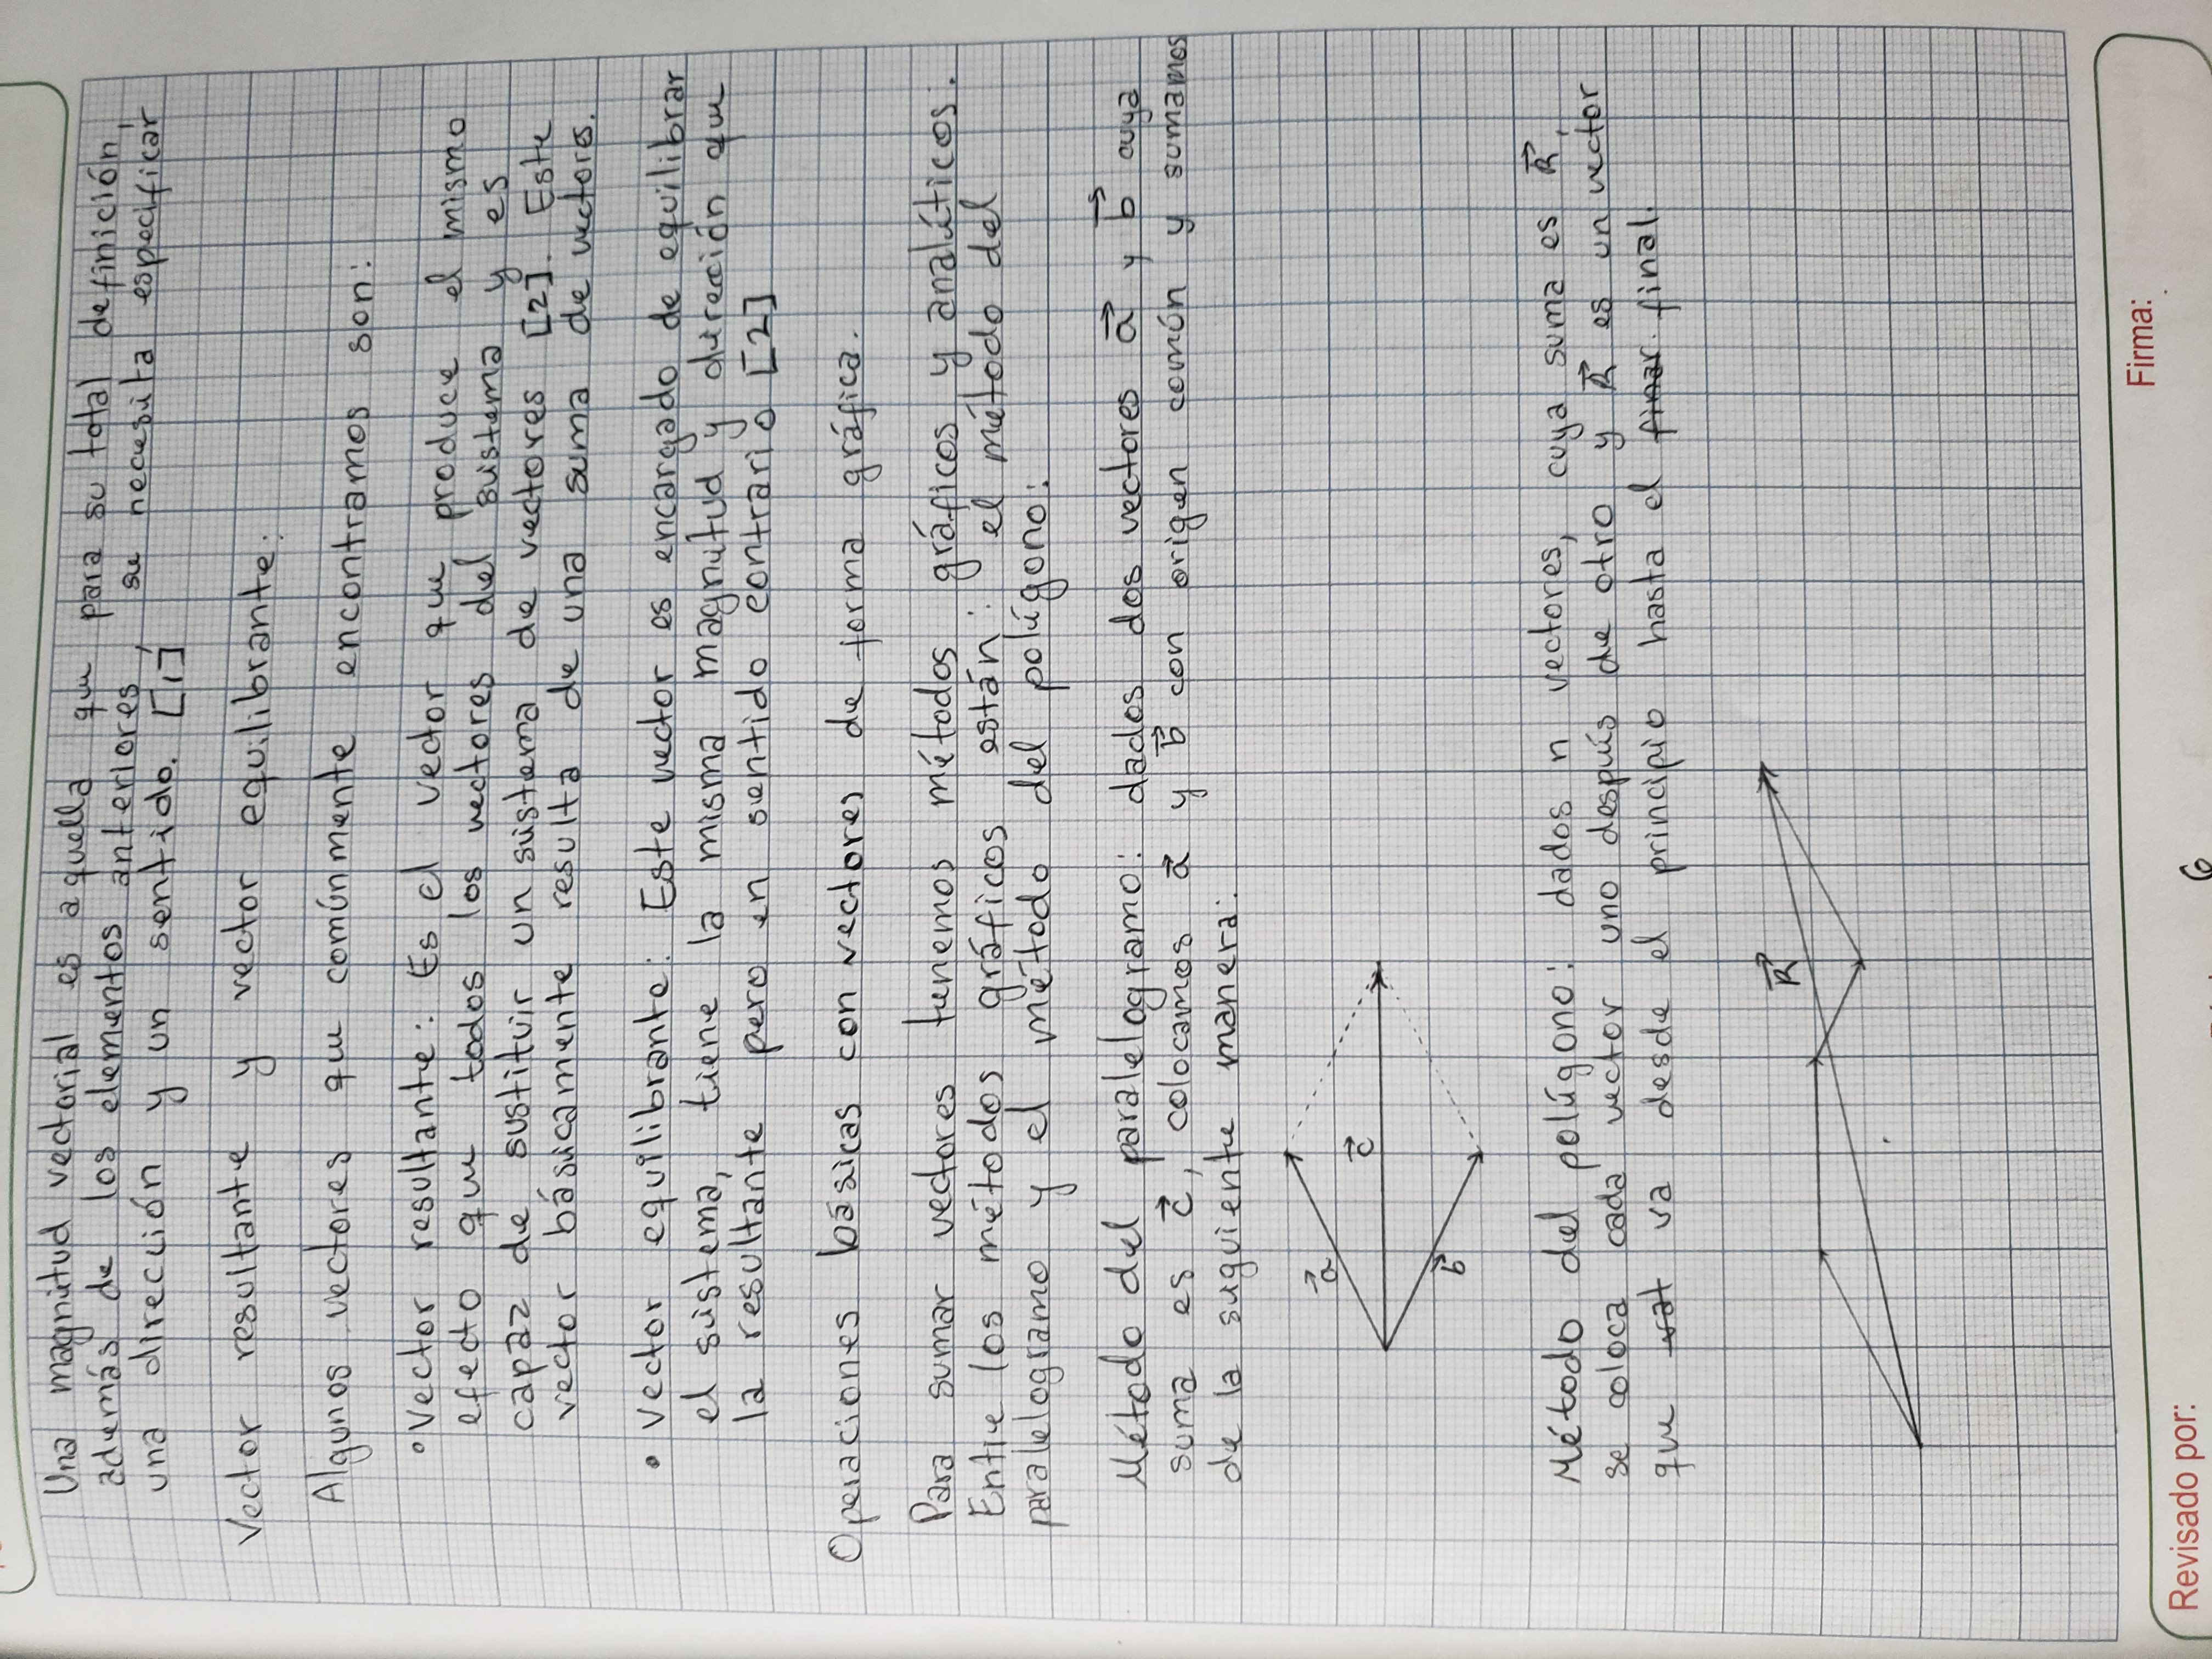 Una magnitud vectorial es aquella que para su total definición,
además de los elementos anteriores, se necesita especificar
una dirección y un sentido. [1]
Vector resultante y vector equilibrante:
Algunos vectores que comúnmente encontramos son:
• Vector resultante: Es el vector que produce el mismo
efecto que todos los vectores del sistema y es
capaz de sustituir un sistema de vectores [2]. Este
vector básicamente resulta de una suma de vectores.
• Vector equilibrante: Este vector es encargado de equilibrar
el sistema, tiene la misma magnitud y dirección que
la resultante pero en sentido contrario [2]
Operaciones básicas con vectores de forma gráfica.
Para sumar vectores tenemos métodos gráficos y analíticos.
Entre los métodos gráficos están: el método del
paralelogramo y el método del polígono:
Método del paralelogramo: dados dos vectores a⃗ y b⃗ cuya
suma es c⃗, colocamos a⃗ y b⃗ con origen común y sumamos
de la siguiente manera:
a⃗
c⃗
b⃗
Método del polígono: dados n vectores, cuya suma es R⃗,
se coloca cada vector uno después de otro y R⃗ es un vector
que va desde el principio hasta el final.
R⃗
Firma:
Revisado por:
6